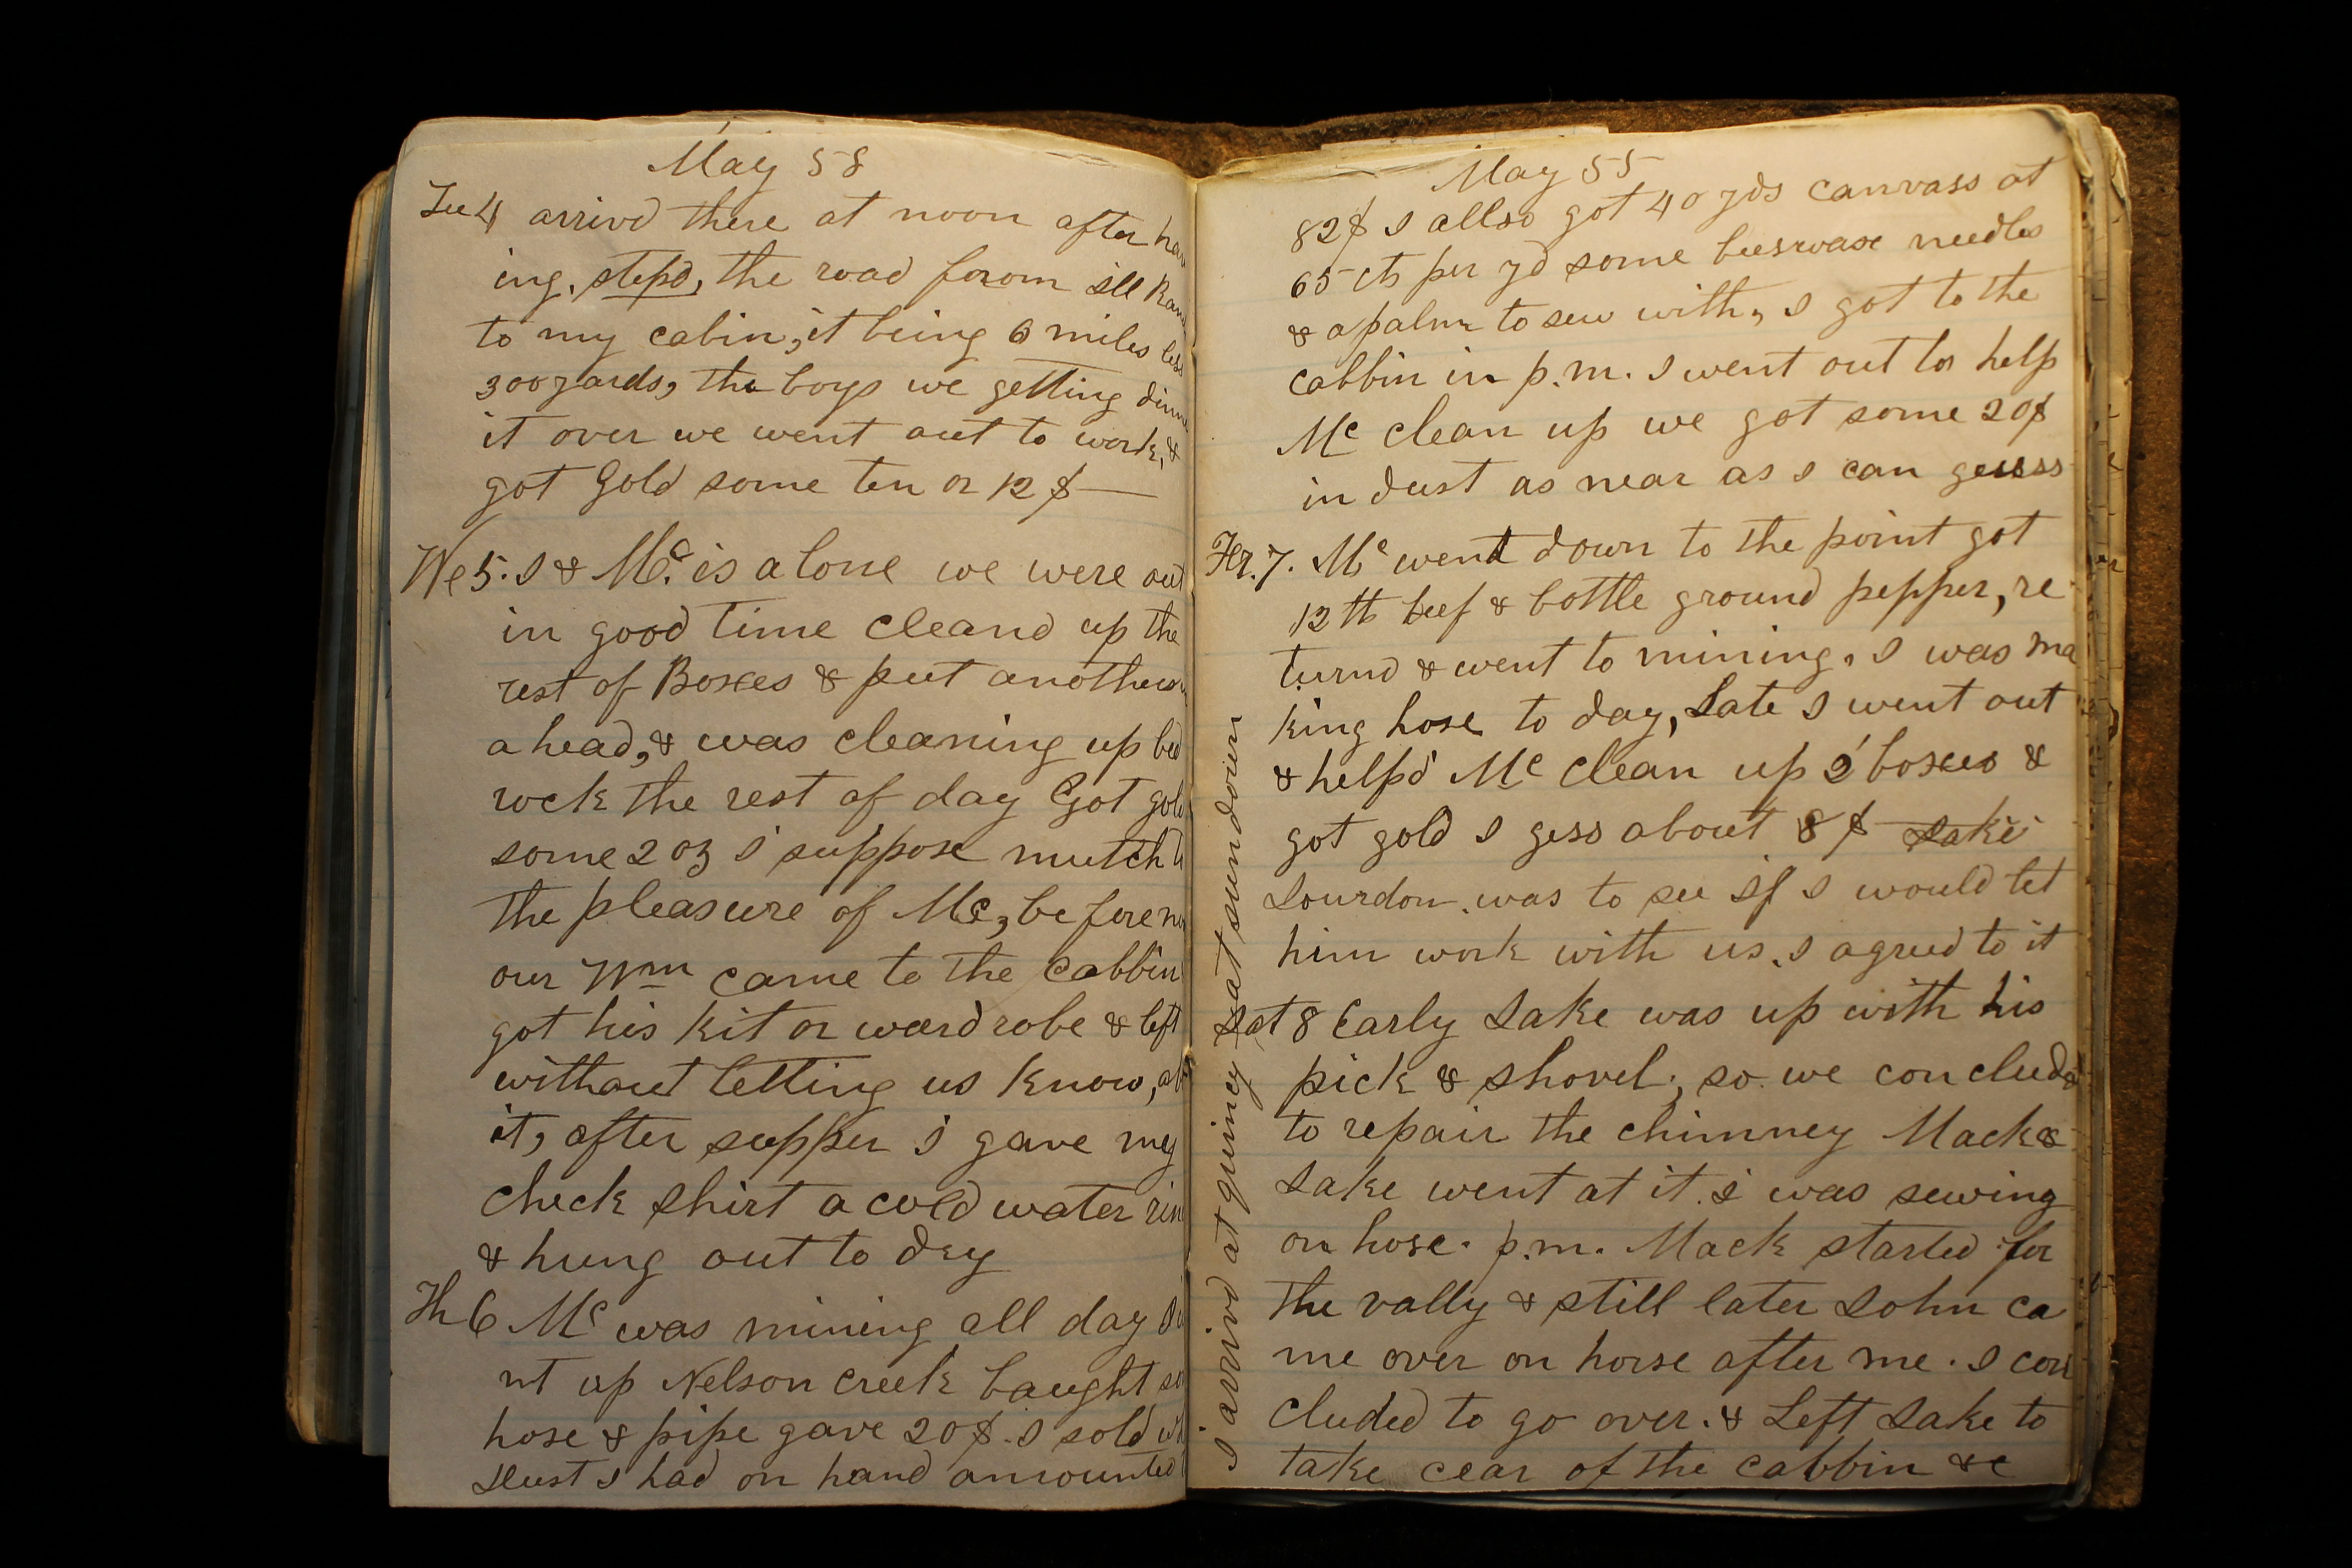 May 58
Tu 4 arrivd there at noon after hav
ing, stepd, the road forom Ill Ran
to my cabin, it being 6 miles less
300 yards, the boys we getting dinne
it over we went out to work, &
got Gold some ten or 12 $
We 5. I & Mc. is alone we were out
in good time cleand up the
rest of Boxes & put another
ahead, & was cleaning up bed
rock the rest of day Got gold
some 2 oz I suppose mutch
the pleasure of Mc, before
our Wm came to the Cabbin
got his kit or wardrobe & left
without letting us know,
it, after supper I gave my
check shirt a cold water rin
& hung out to dry
Th 6 Mc was mining all day
nt up Nelson creek baught
hose & pipe gave 20$. I sold
Dust I had on hand amounted
May 55
82$ I allso got 40 yds canvass at
65 cts per yd some beeswaxe needles
& a palm to sew with, I got to the
cabbin in p.m. I went out to help
Mc clean up we got some 20$
in dust as near as I can guess
Fr. 7. Mc went down to the point got
12 lb beef & bottle ground pepper, re
turnd & went to mining, I was ma
king hose to day, Late I went out
& helpd Mc clean up 2 boxes &
got gold I gess about 8 $ Jake
was to see If I would let
him work with us, I agreed to it
Sat 8 Early Jake was up with his
pick & shovel, so we concluded
to repair the chimney Mack &
Jake went at it. I was sewing
on hose. p.m. Mack started for
the vally & still later John ca
me over on horse after me. I con
cluded to go over. & Left Jake to
take cear of the cabbin &c
I arrivd at quincy at sundown